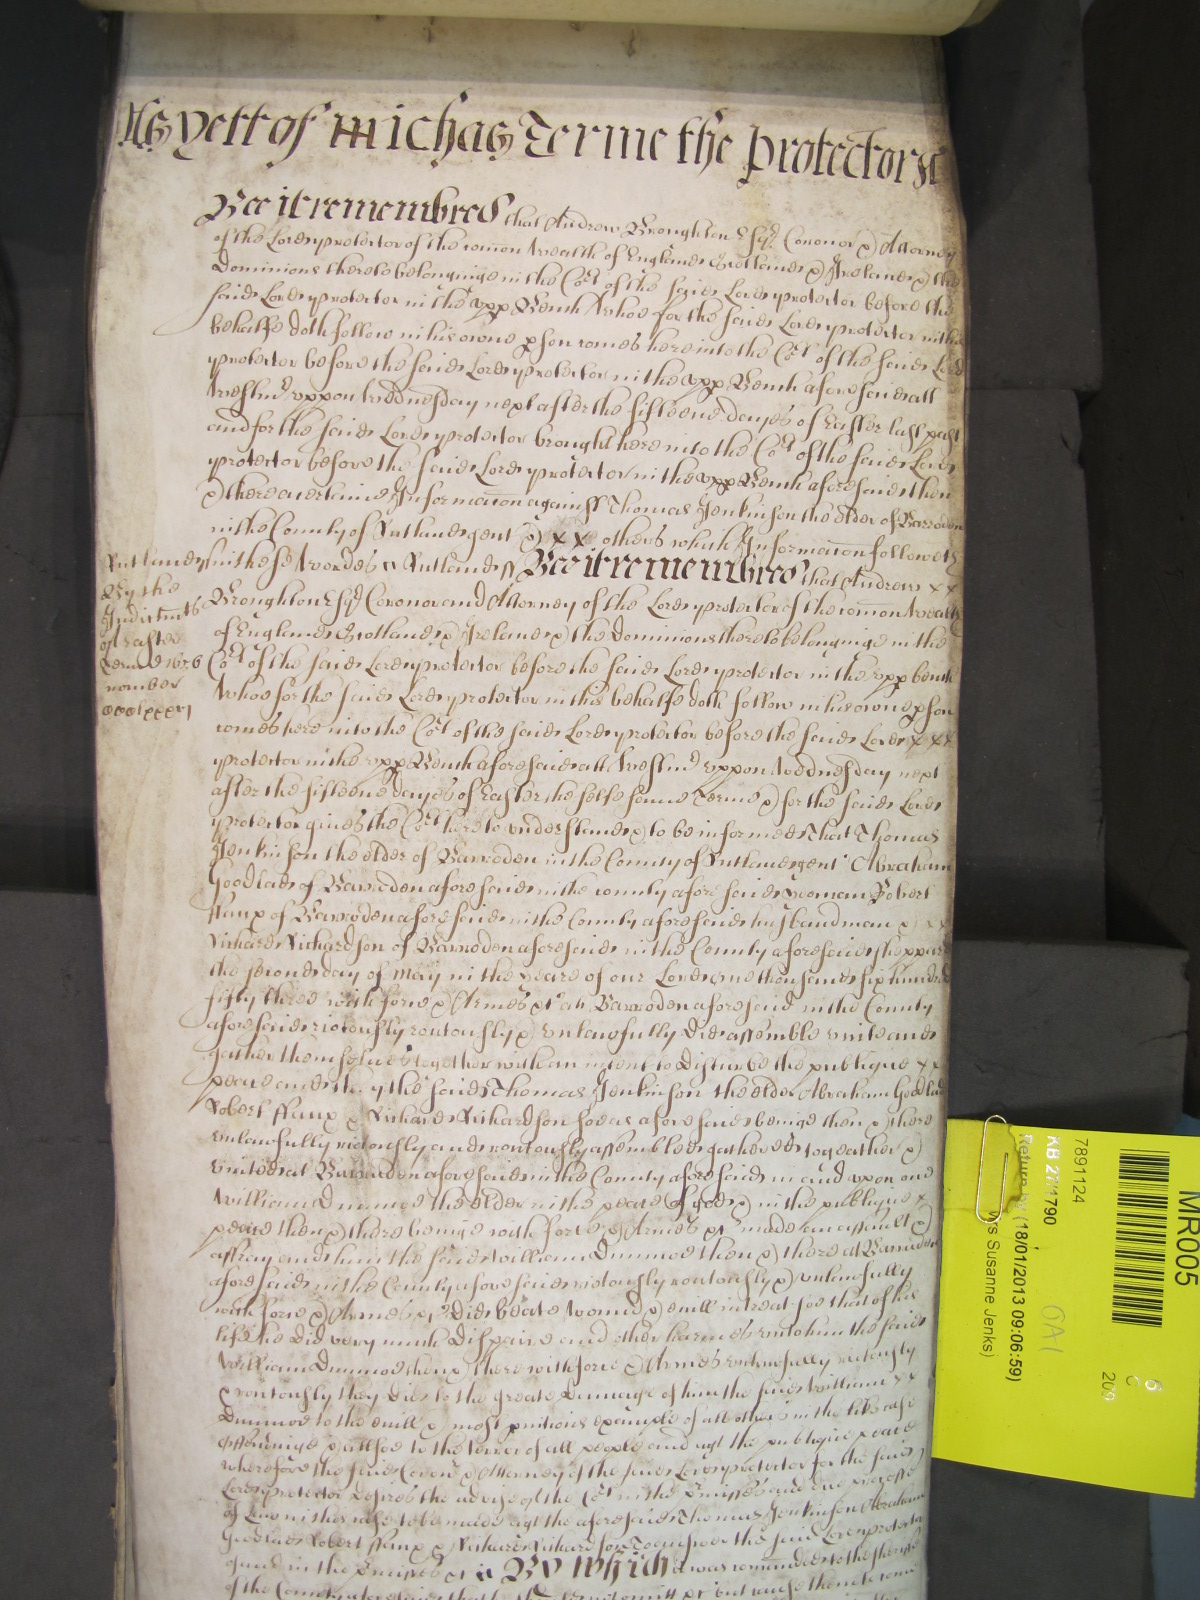 As yett of Michas Terme the Protectors
Bee it remembred that Andrew Broughton Esqr Coronor & Attorney
of the Lord protector of the comon Wealth of England Scotland & Ireland & the
Dominions thereto belonginge in the Cort of the said Lord protector before the
said Lord protector in the upp Bench whoe for the said Lord protector in this
behalfe doth follow in his owne pson comes here into the Cort of the said Lord
protector before the said Lord protector in the upp Bench aforesaid att
Westmr uppon Wednesday next after the fifteene dayes of Easter last past
and for the said Lord protector brought here into the Cort of the said Lord
protector before the said Lord protector in the upp Bench aforesaid then
& there a certaine Informacon against Thomas Jenkinson the elder of Barroden
in the County of Rutland gent & x x others which Informacon followeth
in these wordes ss Rutland ss Bee it remembred that Andrew x x
Rutland ss
By the
Indictmts
of Easter
Terme 1656
number
Broughton Esqr Coronor and Attorney of the Lord protector of the comon Wealth
of England Scotland & Ireland & the Dominions thereto belonginge in the
Cort of the said Lord protector before the said Lord protector in the upp bench
whoe for the said Lord protector in this behalfe doth follow in his owne pson
comes here into the Cort of the said Lord protector before the said Lord x x x
protector in the upp Bench aforesaid att Westmr uppon Wednesday next
after the fifteene dayes of Easter the selfe same Terme & for the said Lord
protector gives the Cort here to understand & to be informed That Thomas
Jenkinson the elder of Barroden in the County of Rutland gent Abraham
Goodlad of Barroden aforesaid in the county aforesaid yeoman Robert
ffaux of Barroden aforesaid in the County aforesaid husbandman & x x
Richard Richardson of Barroden aforesaid in the County aforesaid
the second day of May in the yeare of our Lord one thousand six hundred
fifty three with force & Armes &c att Barroden aforesaid in the County
aforesaid riotously routously & unlawfully did assemble unite and
gather themselves together with an intent to disturbe the publique x x
peace and they the said Thomas Jenkinson the elder Abraham Goodlad
Robert ffaux & Richard Richardson soe as aforesaid beinge then & there
unlawfully riotously and routously assembled gathered together &
united at Barroden aforesaid in the County aforesaid in and upon one
William Dunmoe the elder in the peace of god & in the publique x
peace then & there beinge with force & Armes &c made an assault &
affray and him the said William Dunmoe then & there at Barroden
aforesaid in the County aforesaid riotously routously & unlawfully
with force & Armes &c did beate wound & evill intreat soe that of his
life he did very much dispaire and other harmes unto him the said
William Dunmoe then & there with force & Armes unlawfully riotously
& routously they did to the great Damage of him the said William x x
Dunmoe to the evill & most pnitious example of all others in the like case
offendinge & alsoe to the terror of all people and agt the publique peace
wherefore the said Coronr & Attorney of the said Lord protector for the said
Lord protector desires the advise of the Cort in the Premisses and due processe
of Law in this case to be made agt the aforesaid Thomas Jenkinson Abraham
Goodlad Robert ffaux & Richard Richardson To answer the said Lord protector
of and in the Premisses &c By Which it was comanded to the Sheriffe
MR005
7891124
KB 27/1790
Return by (18/01/2013 09:06:59)
Susanne Jenks)
6
C
209